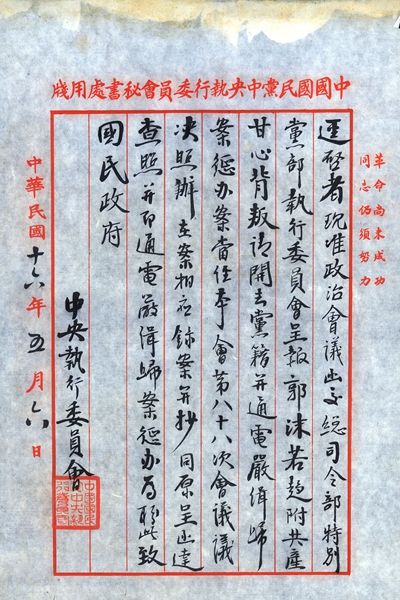 中國國民黨中央執行委員會秘書處用牋
革命尚未成功
同志仍須努力
逕啓者現准政治會議函交總司令部特別
黨部執行委員會呈報郭沫若趨附共產
甘心背叛請開去黨籍并通電嚴緝歸
案懲办案當經本會第八十八次會議議
决照辦在案相應錄案并抄同原呈函達
查照并即通電嚴緝歸案懲办爲荷此致
國民政府
中央執行委員會
中華民國十六年五月六日